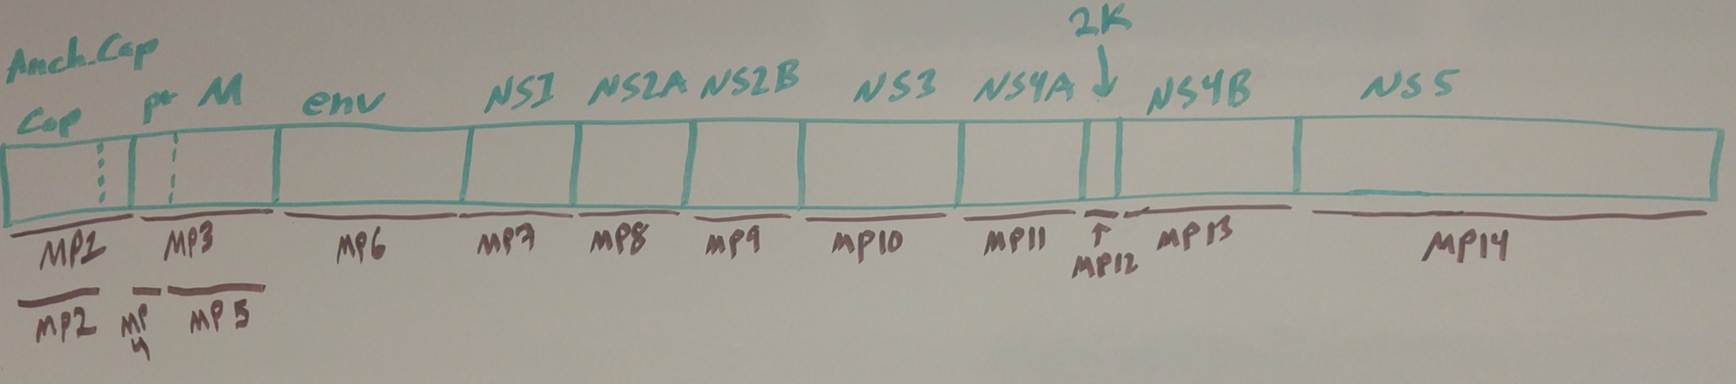 2K
Anch.Cap
Cap pr M env NS1 NS2A NS2B NS3 NS4A NS4B NS5
MP1 MP3 MP6 MP7 MP8 MP9 MP10 MP11 MP12 MP13 MP14
MP2 MP4 MP5